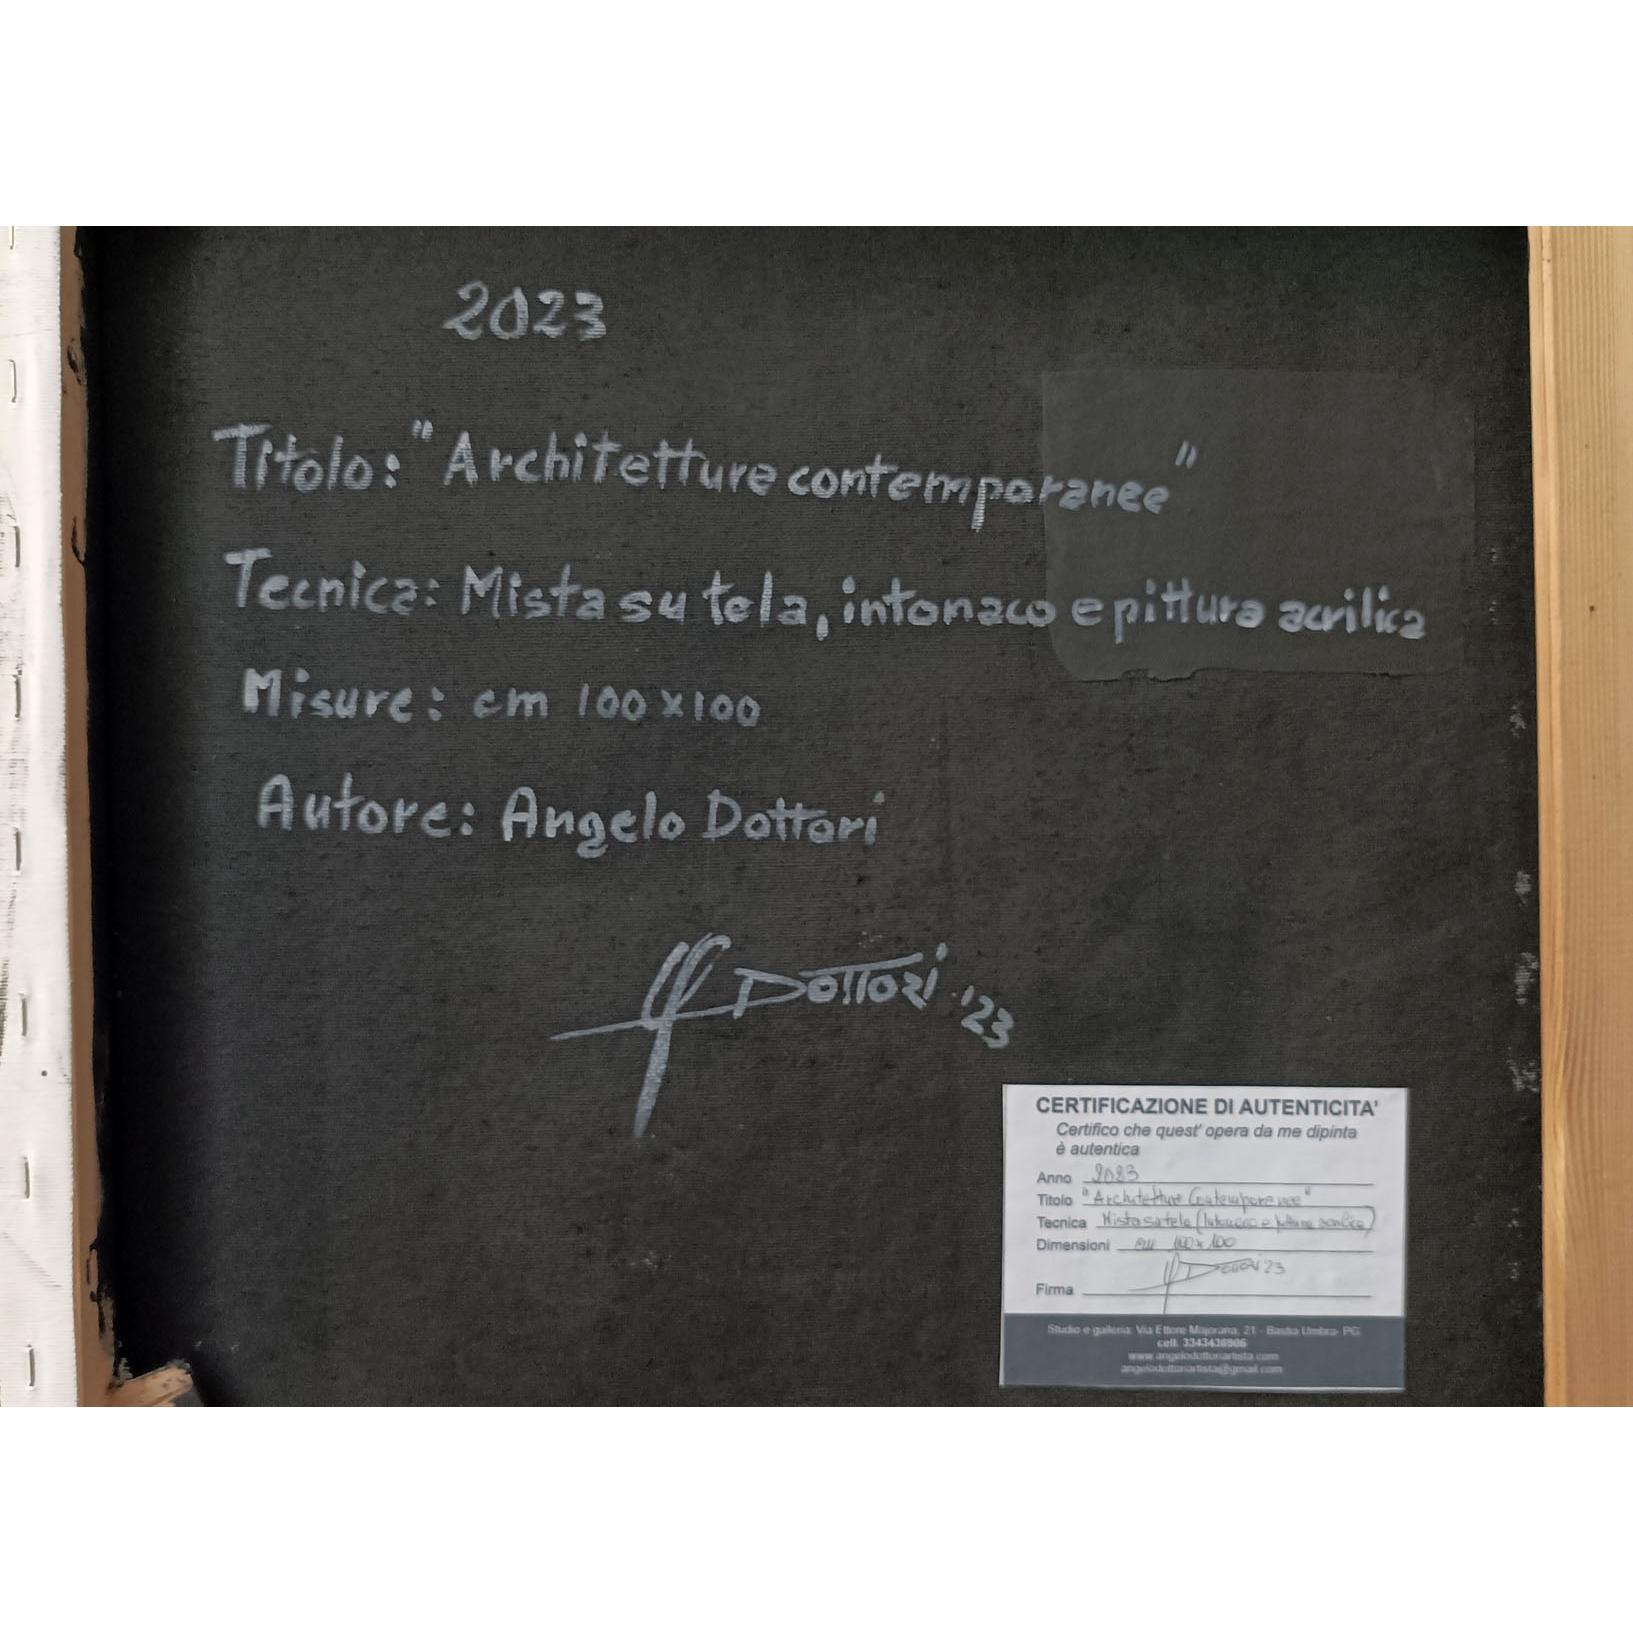 2023
Titolo: "Architetture contemporanee"
Tecnica: Mista su tela, intonaco e pittura acrilica
Misure: cm 100x100
Autore: Angelo Dottori
Dottori '23
CERTIFICAZIONE DI AUTENTICITA'
Certifico che quest' opera da me dipinta
è autentica
Anno 2023
Titolo "Architetture Contemporanee"
Tecnica Mista su tela (Intonaco e pittura acrilica)
Dimensioni cm 100x100
Dottori '23
Firma
Studio e galleria: Via Ettore Majorana, 21 - Bastia Umbra- PG
cell. 3343438906
www.angelodottoriartista.com
angelodottoriartista@gmail.com